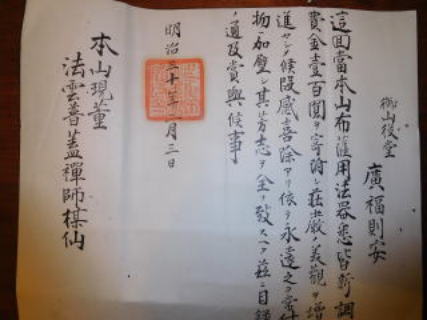 御山後堂
廣福則安
這回當本山布薩用法器悉皆新調
費金壹百圓ヲ寄附シ莊嚴ノ美觀ヲ増
進セシメ候段感喜除アリ依テ永遠之ヲ
物ニ加璧シ其芳志ヲ全
致スヘク茲ニ目録
ノ通及賞與候事
明治三十年 月三日
本山現董
法雲普蓋禪師棋仙